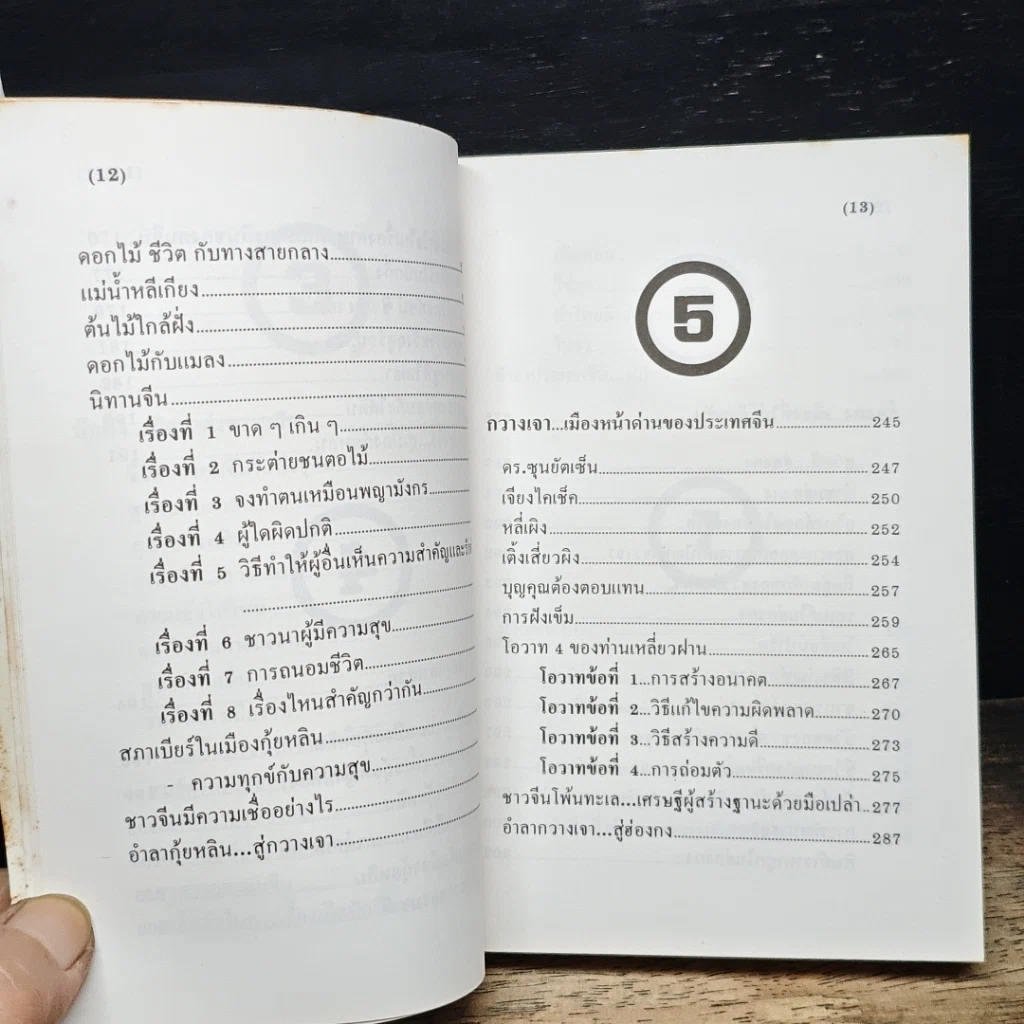 (12)
ดอกไม้ ชีวิต กับทางสายกลาง
แม่น้ำหลีเกียง
ต้นไม้ใกล้ฝั่ง
ดอกไม้กับแมลง
นิทานจีน
เรื่องที่ 1 ขาด ๆ เกิน ๆ
เรื่องที่ 2 กระต่ายชนตอไม้
เรื่องที่ 3 จงทำตนเหมือนพญามังกร
เรื่องที่ 4 ผู้ใดผิดปกติ
เรื่องที่ 5 วิธีทำให้ผู้อื่นเห็นความสำคัญและ
เรื่องที่ 6 ชาวนาผู้มีความสุข
เรื่องที่ 7 การถนอมชีวิต
เรื่องที่ 8 เรื่องไหนสำคัญกว่ากัน
สภาเบียร์ในเมืองกุ้ยหลิน
- ความทุกข์กับความสุข
ชาวจีนมีความเชื่ออย่างไร
อำลากุ้ยหลิน...สู่กวางเจา
(13)
5
กวางเจา...เมืองหน้าด่านของประเทศจีน 245
ดร.ซุนยัตเซ็น 247
เจียงไคเช็ค 250
หลี่เผิง 252
เติ้งเสี่ยวผิง 254
บุญคุณต้องตอบแทน 257
การฝังเข็ม 259
โอวาท 4 ของท่านเหลี่ยวฝาน 265
โอวาทข้อที่ 1...การสร้างอนาคต 267
โอวาทข้อที่ 2...วิธีแก้ไขความผิดพลาด 270
โอวาทข้อที่ 3...วิธีสร้างความดี 273
โอวาทข้อที่ 4...การถ่อมตัว 275
ชาวจีนโพ้นทะเล...เศรษฐีผู้สร้างฐานะด้วยมือเปล่า 277
อำลากวางเจา...สู่ฮ่องกง 287